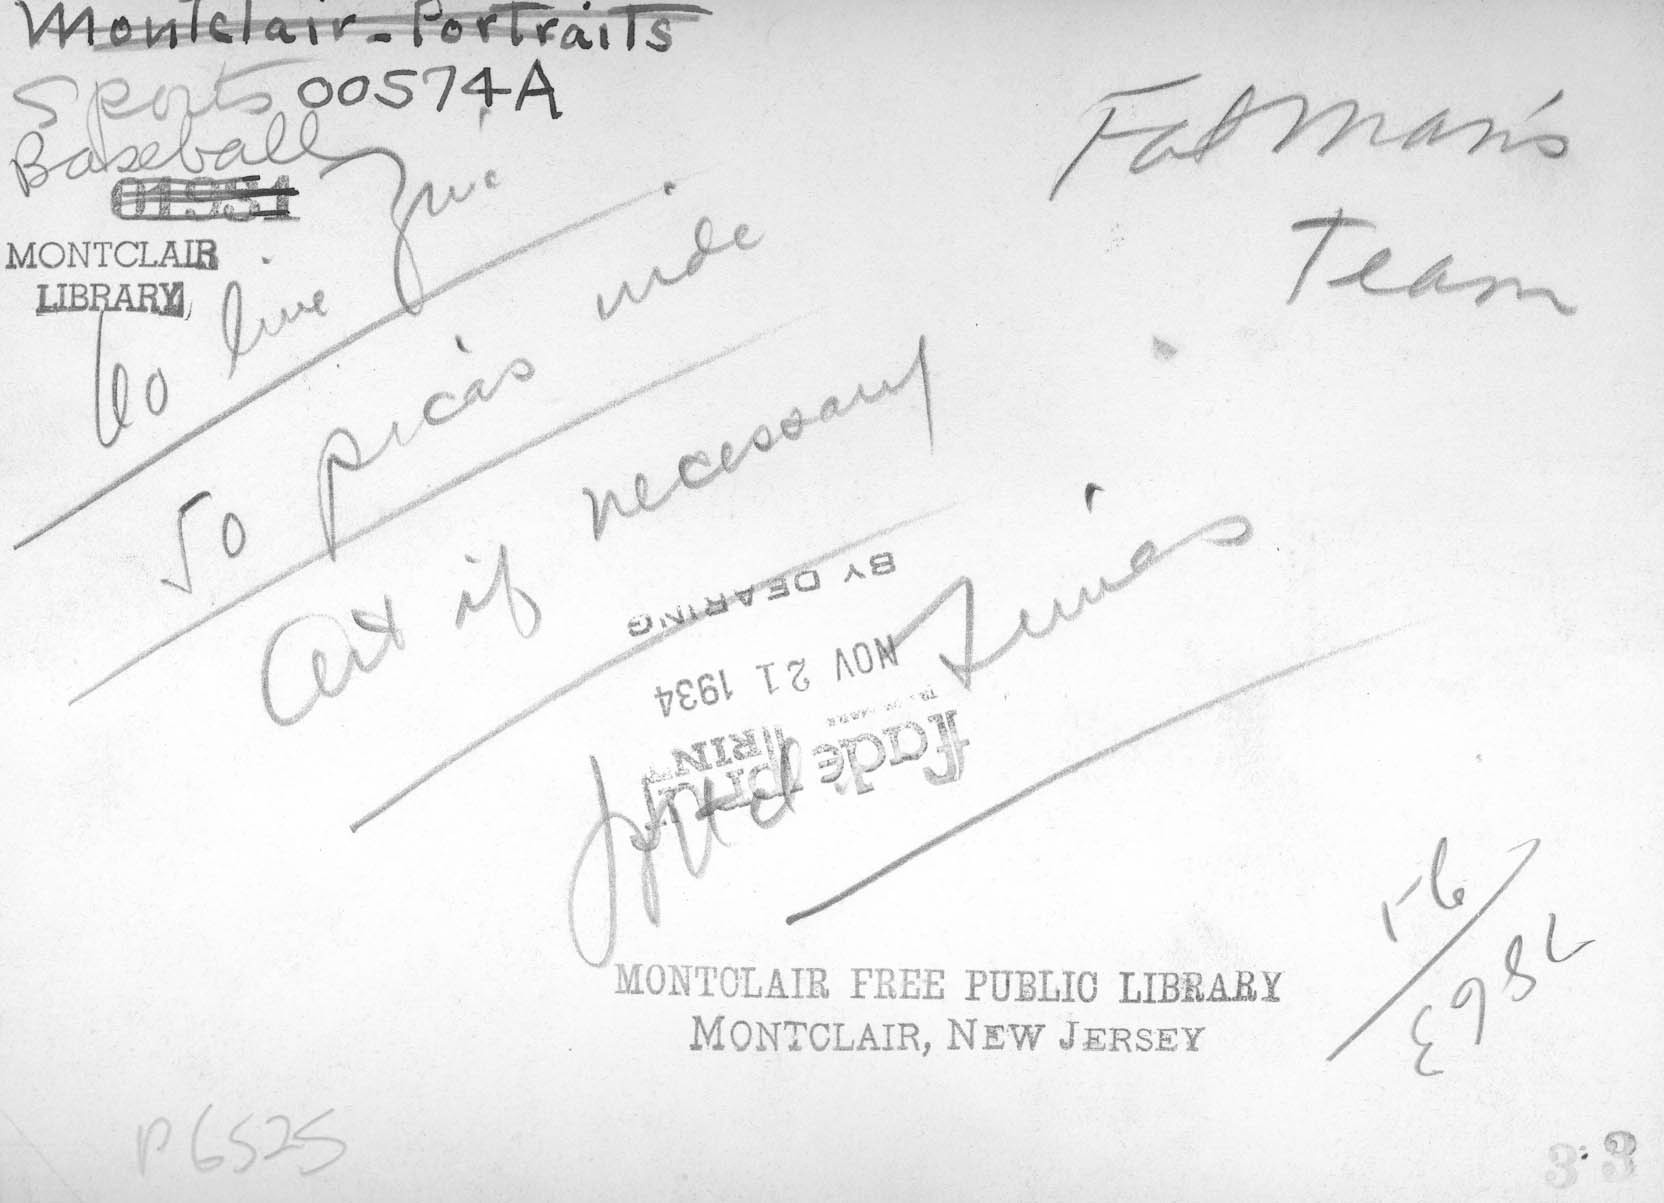 Montclair-Portraits
Sports 00574A
Baseball
01951
MONTCLAIR
LIBRARY
Fatman's
Team
60 line Zinc
50 picas wide
Art if necessary
BY DEARING
NOV 21 1934
Times
MONTCLAIR FREE PUBLIC LIBRARY
MONTCLAIR, NEW JERSEY
P6525
3 3